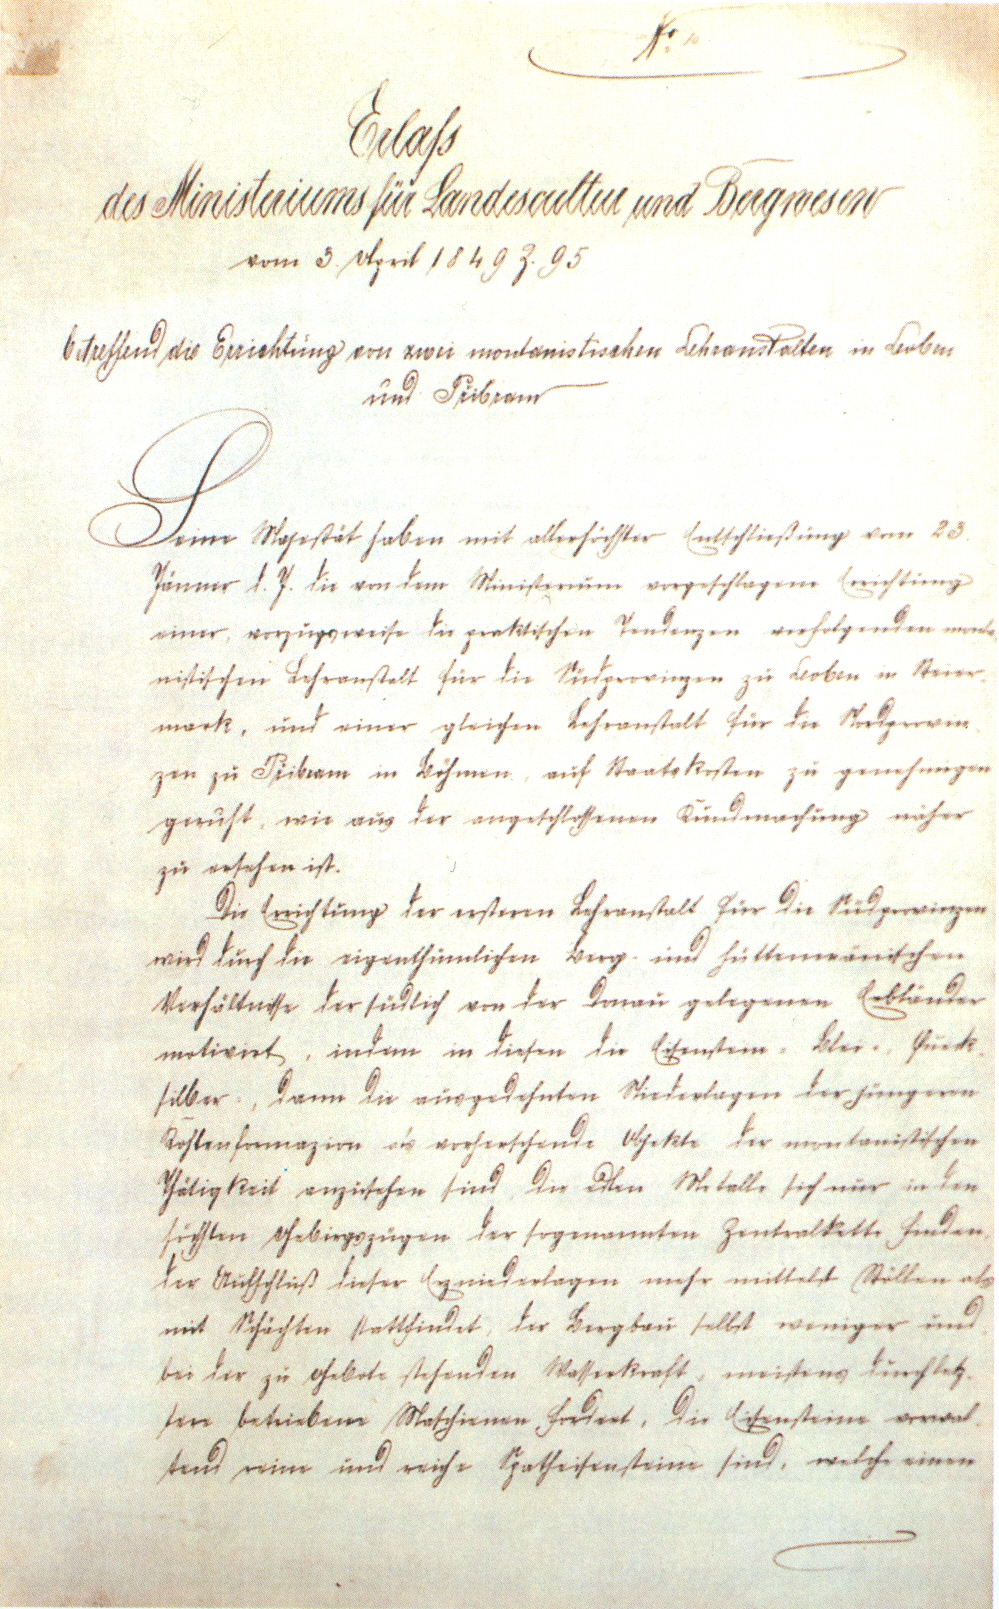 No 10
Erlaß
des Ministeriums für Landescultur und Bergwesen
vom 3. April 1849 Z. 95
betreffend die Errichtung von zwei montanistischen Lehranstalten in Leoben
und Přibram
Seine Majestät haben mit allerhöchster Entschließung vom 23.
Jänner d. J. die von dem Ministerium vorgeschlagene Errichtung
einer, vorzugsweise die praktischen Tendenzen verfolgenden monta-
nistischen Lehranstalt für die Südprovinzen zu Leoben in Steier-
mark, und einer gleichen Lehranstalt für die Nordprovin-
zen zu Přibram in Böhmen, auf Staatskosten zu genehmigen
geruht, wie aus der angeschlossenen Kundmachung näher
zu ersehen ist.
Die Errichtung der ersteren Lehranstalt für die Südprovinzen
wird durch die eigenthümlichen Berg- und hüttenmännischen
Verhältnisse der südlich von der Donau gelegenen Erbländer
motivirt, indem in diesen die Eisenstein-, Blei-, Queck-
silber-, dann die ausgedehnten Niederlagen der jüngeren
Kohlenformazion als vorherschende Objekte der montanistischen
Thätigkeit anzusehen sind, die edlen Metalle sich nur in den
höchsten Gebirgszügen der sogenannten Zentralkette finden,
der Aufschluß dieser Erzniederlagen mehr mittelst Stollen als
mit Schächten stattfindet, der Bergbau selbst weniger und
bei der zu Gebote stehenden Wasserkraft, meistens durch letz-
tere betriebene Maschienen fordert, die Eisensteine vorwal-
tend reine und reiche Spatheisensteine sind, welche einen